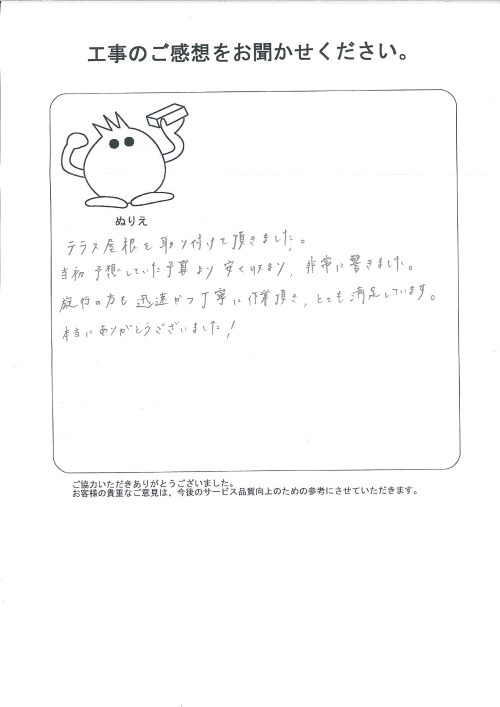 工事のご感想をお聞かせください。
ぬりえ
テラス屋根を取り付けて頂きました。
当初予想していた予算より安く収まり、非常に驚きました。
施行の方も迅速かつ丁寧に作業頂き、とても満足しています。
本当にありがとうございました!
ご協力いただきありがとうございました。
お客様の貴重なご意見は、今後のサービス品質向上のための参考にさせていただきます。